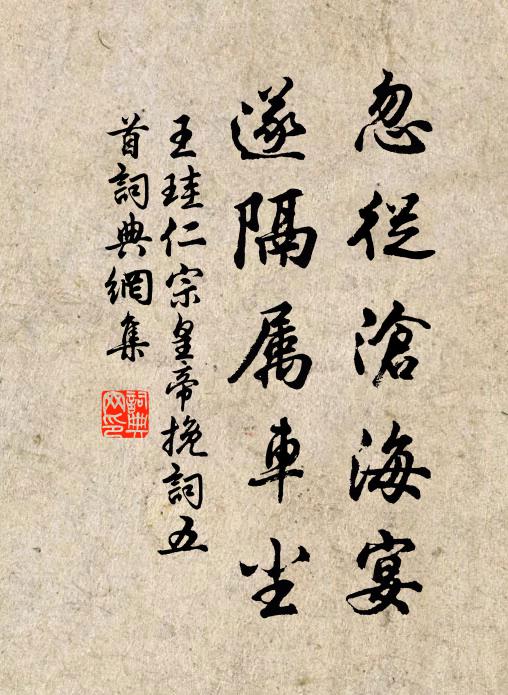 忽從滄海宴
遂隔属車尘
王珪仁宗皇帝挽詞五
首詞典網集
詞典网印